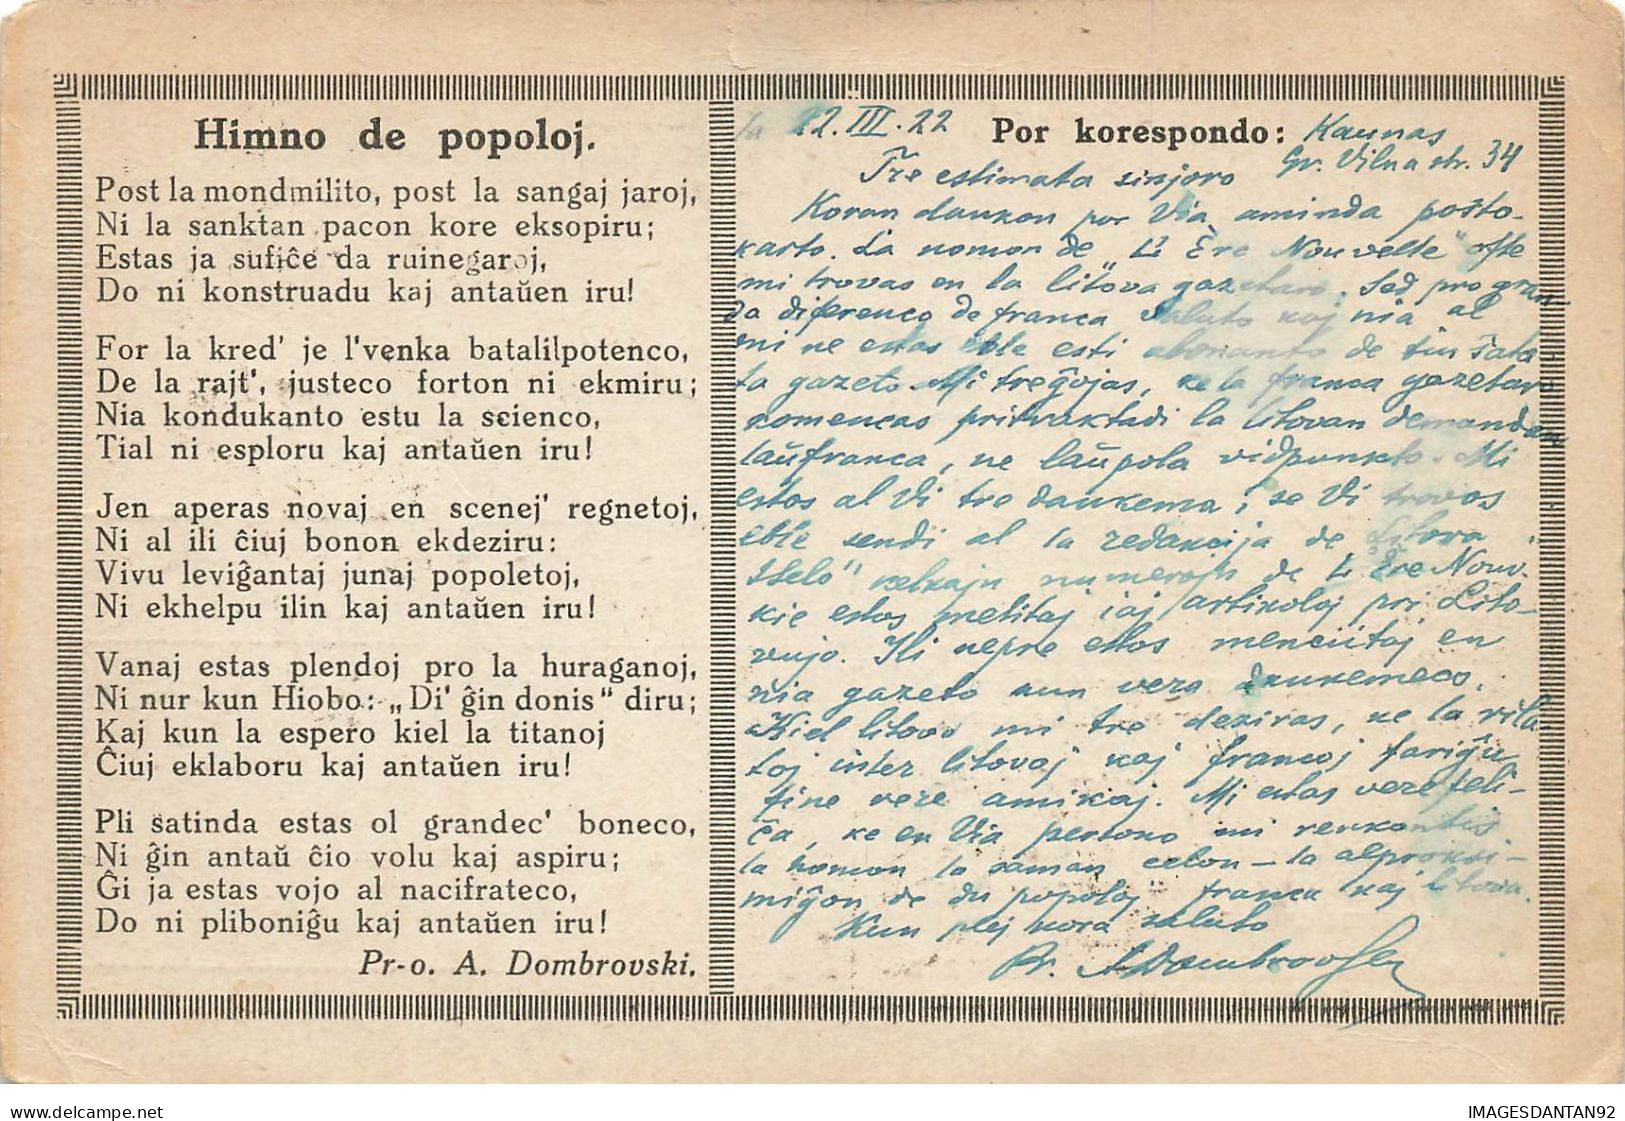 Himno de popoloj.
Post la mondmilito, post la sangaj jaroj,
Ni la sanktan pacon kore eksopiru;
Estas ja sufiĉe da ruinegaroj,
Do ni konstruadu kaj antaŭen iru!
For la kred' je l'venka batalilpotenco,
De la rajt', justeco forton ni ekmiru;
Nia kondukanto estu la scienco,
Tial ni esploru kaj antaŭen iru!
Jen aperas novaj en scenej' regnetoj,
Ni al ili ĉiuj bonon ekdeziru:
Vivu leviĝantaj junaj popoletoj,
Ni ekhelpu ilin kaj antaŭen iru!
Vanaj estas plendoj pro la huraganoj,
Ni nur kun Hiobo: „Di' ĝin donis“ diru;
Kaj kun la espero kiel la titanoj
Ĉiuj eklaboru kaj antaŭen iru!
Pli satinda estas ol grandec' boneco,
Ni ĝin antaŭ ĉio volu kaj aspiru;
Ĝi ja estas vojo al nacifrateco,
Do ni pliboniĝu kaj antaŭen iru!
Pr-o. A. Dombrovski.
la 22.III.22 Por korespondo: Kaunas
Gr. Vilna str. 34
Tre estimata sinjoro
Koran dankon por Via aminda poŝto-
karto. La nomon de „L' Ère Nouvelle" ofte
mi trovas en la litova gazetaro. Sed pro gran
da diferenco de franca valuto kaj nia al
mi ne estas eble esti abonanto de tiu ŝata
ta gazeto. Mi treĝojas, ke la franca gazetaro
komencas pritraktadi la litovan demandon
laŭfranca, ne laŭpola vidpunkto. Mi
estos al Vi tre dankema, se Vi trovos
eble sendi al la redakcija de „Litova
Stelo" kelkajn numerojn de L' Ère Nouv.
kie estos metitaj iaj artikoloj pri Lito-
vujo. Ili nepre estos menciitaj en
nia gazeto kun vera dankemeco.
Kiel litovo mi tre deziras, ke la rila
toj inter litovaj kaj francoj fariĝu
fine vere amikaj. Mi estas vere feli-
ĉa, ke en Via persono mi renkontis
la homon la saman celon – la alproksi-
miĝon de du popoloj franca kaj litova.
Kun plej kora saluto
Pr. ADombrovski
delcampe.net
IMAGESDANTAN92